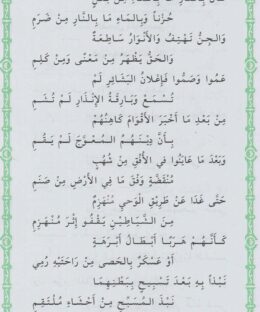 حُزْناً وَبِالْمَاءِ مَا بِالنَّارِ مِنْ ضَرَمِ
وَالْجِنُّ تَهْتِفُ وَالْأَنْوَارُ سَاطِعَةٌ
وَالْحَقُّ يَظْهَرُ مِنْ مَعْنًى وَمِنْ كَلِمِ
عَمُوا وَصَمُّوا فَإِعْلَانُ الْبَشَائِرِ لَمْ
تُسْمَعْ وَبَارِقَةُ الْإِنْذَارِ لَمْ تُشَمِ
مِنْ بَعْدِ مَا أَخْبَرَ الْأَقْوَامَ كَاهِنُهُمْ
بِأَنَّ دِينَهُمُ الْمُعْوَجَّ لَمْ يَقُمِ
وَبَعْدَ مَا عَايَنُوا فِي الْأُفْقِ مِنْ شُهُبٍ
مُنْقَضَّةٍ وَفْقَ مَا فِي الْأَرْضِ مِنْ صَنَمِ
حَتَّى غَدَا عَنْ طَرِيقِ الْوَحْيِ مُنْهَزِمٌ
مِنَ الشَّيَاطِينِ يَقْفُو إِثْرَ مُنْهَزِمِ
كَأَنَّهُمْ هَرَبًا أَبْطَالُ أَبْرَهَةٍ
أَوْ عَسْكَرٌ بِالْحَصَى مِنْ رَاحَتَيْهِ رُمِي
نَبْذًا بِهِ بَعْدَ تَسْبِيحٍ بِبَطْنِهِمَا
نَبْذَ الْمُسَبِّحِ مِنْ أَحْشَاءِ مُلْتَقِمِ